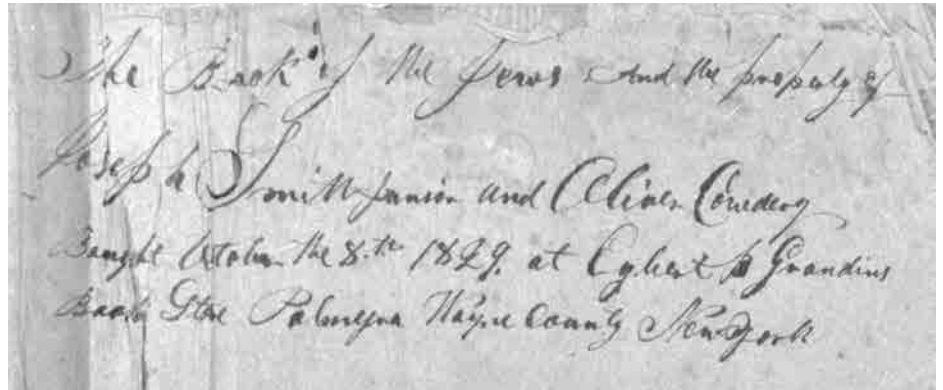 The Book of the Jews And the property of
Joseph Smith Junior and Oliver Cowdery
Bought October the 8th 1829. at Egbert B Grandins
Book Store Palmyra Wayne County New York